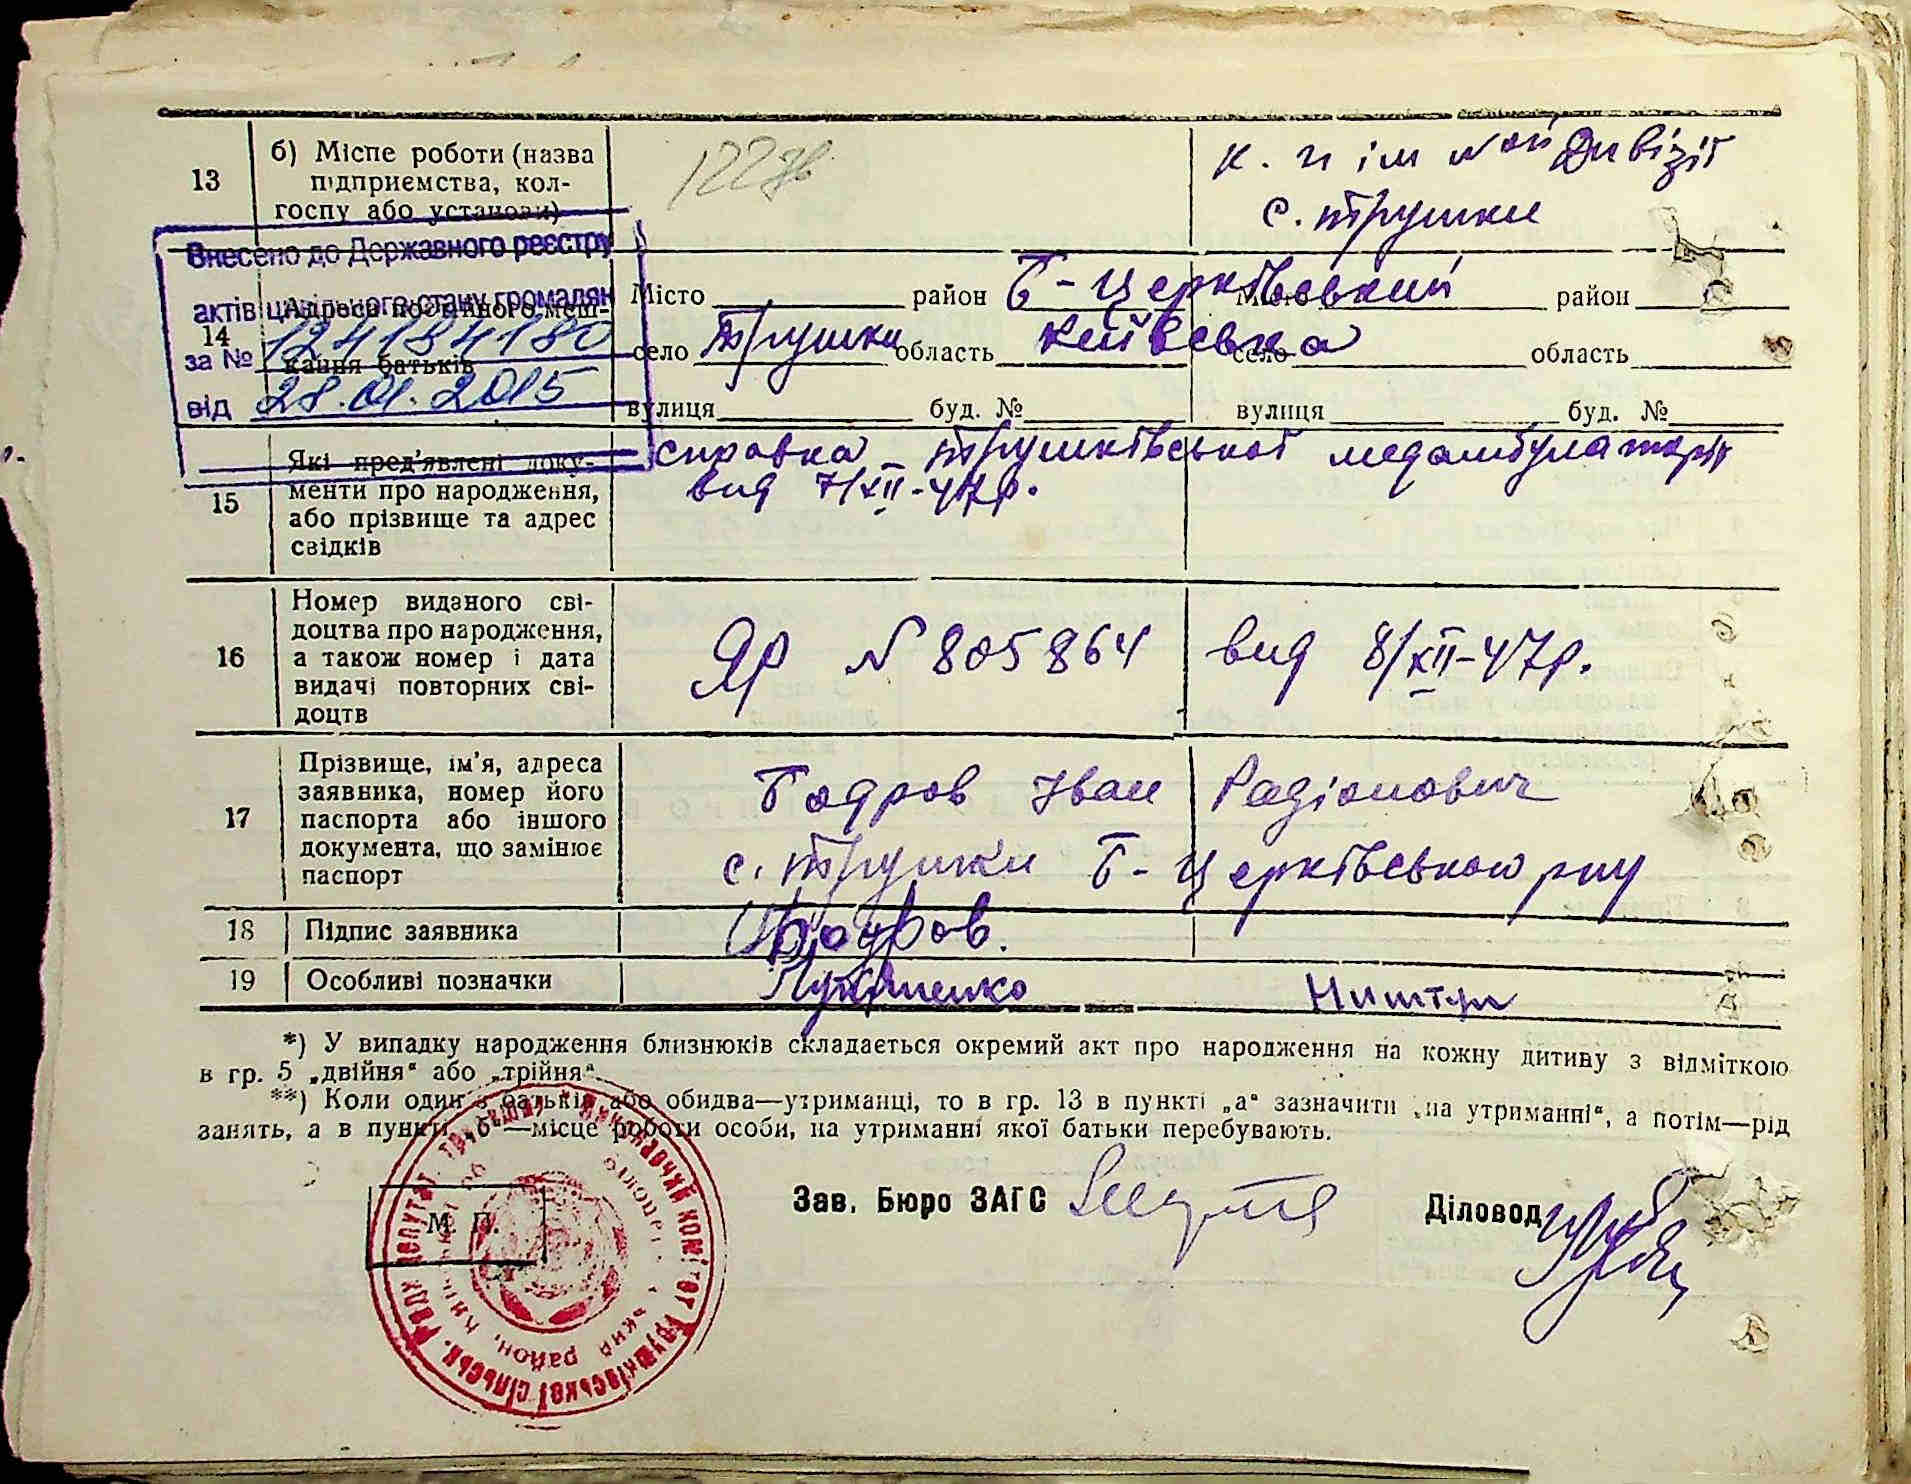 13
б) Місце роботи (назва
підприємства, кол-
госпу або установи)
к. г ім ної Дивізії
с. Трушки
Внесено до Державного реєстру
актів цивільного стану громадян
за № 124184180
від 28.01.2015
14
Адреса постійного меш-
кання батьків
Місто район Б-Церківський Місто район
село Трушки область Київська село область
вулиця буд. № вулиця буд. №
15
Які пред’явлені доку-
менти про народження,
або прізвище та адрес
свідків
справка Трушківської медамбулаторії
вид 7/XII-47р.
16
Номер виданого сві-
доцтва про народження,
а також номер і дата
видачі повторних сві-
доцтв
ЯР № 805864 вид 8/XII-47р.
17
Прізвище, ім’я, адреса
заявника, номер його
паспорта або іншого
документа, що замінює
паспорт
Бодров Іван Радіонович
с. Трушки Б-Церківського р-ну
18 Підпис заявника
Бодров.
19 Особливі позначки
*) У випадку народження близнюків складається окремий акт про народження на кожну дитину з відміткою
в гр. 5 „двійня“ або „трійня“.
**) Коли один з батьків або обидва—утриманці, то в гр. 13 в пункті „а“ зазначити „на утриманні“, а потім—рід
занять, а в пункті „б“—місце роботи особи, на утриманні якої батьки перебувають.
М. П.
Зав. Бюро ЗАГС
Діловод
Виконавчий комітет Трушківської сільськ. Ради депутат. трудящих